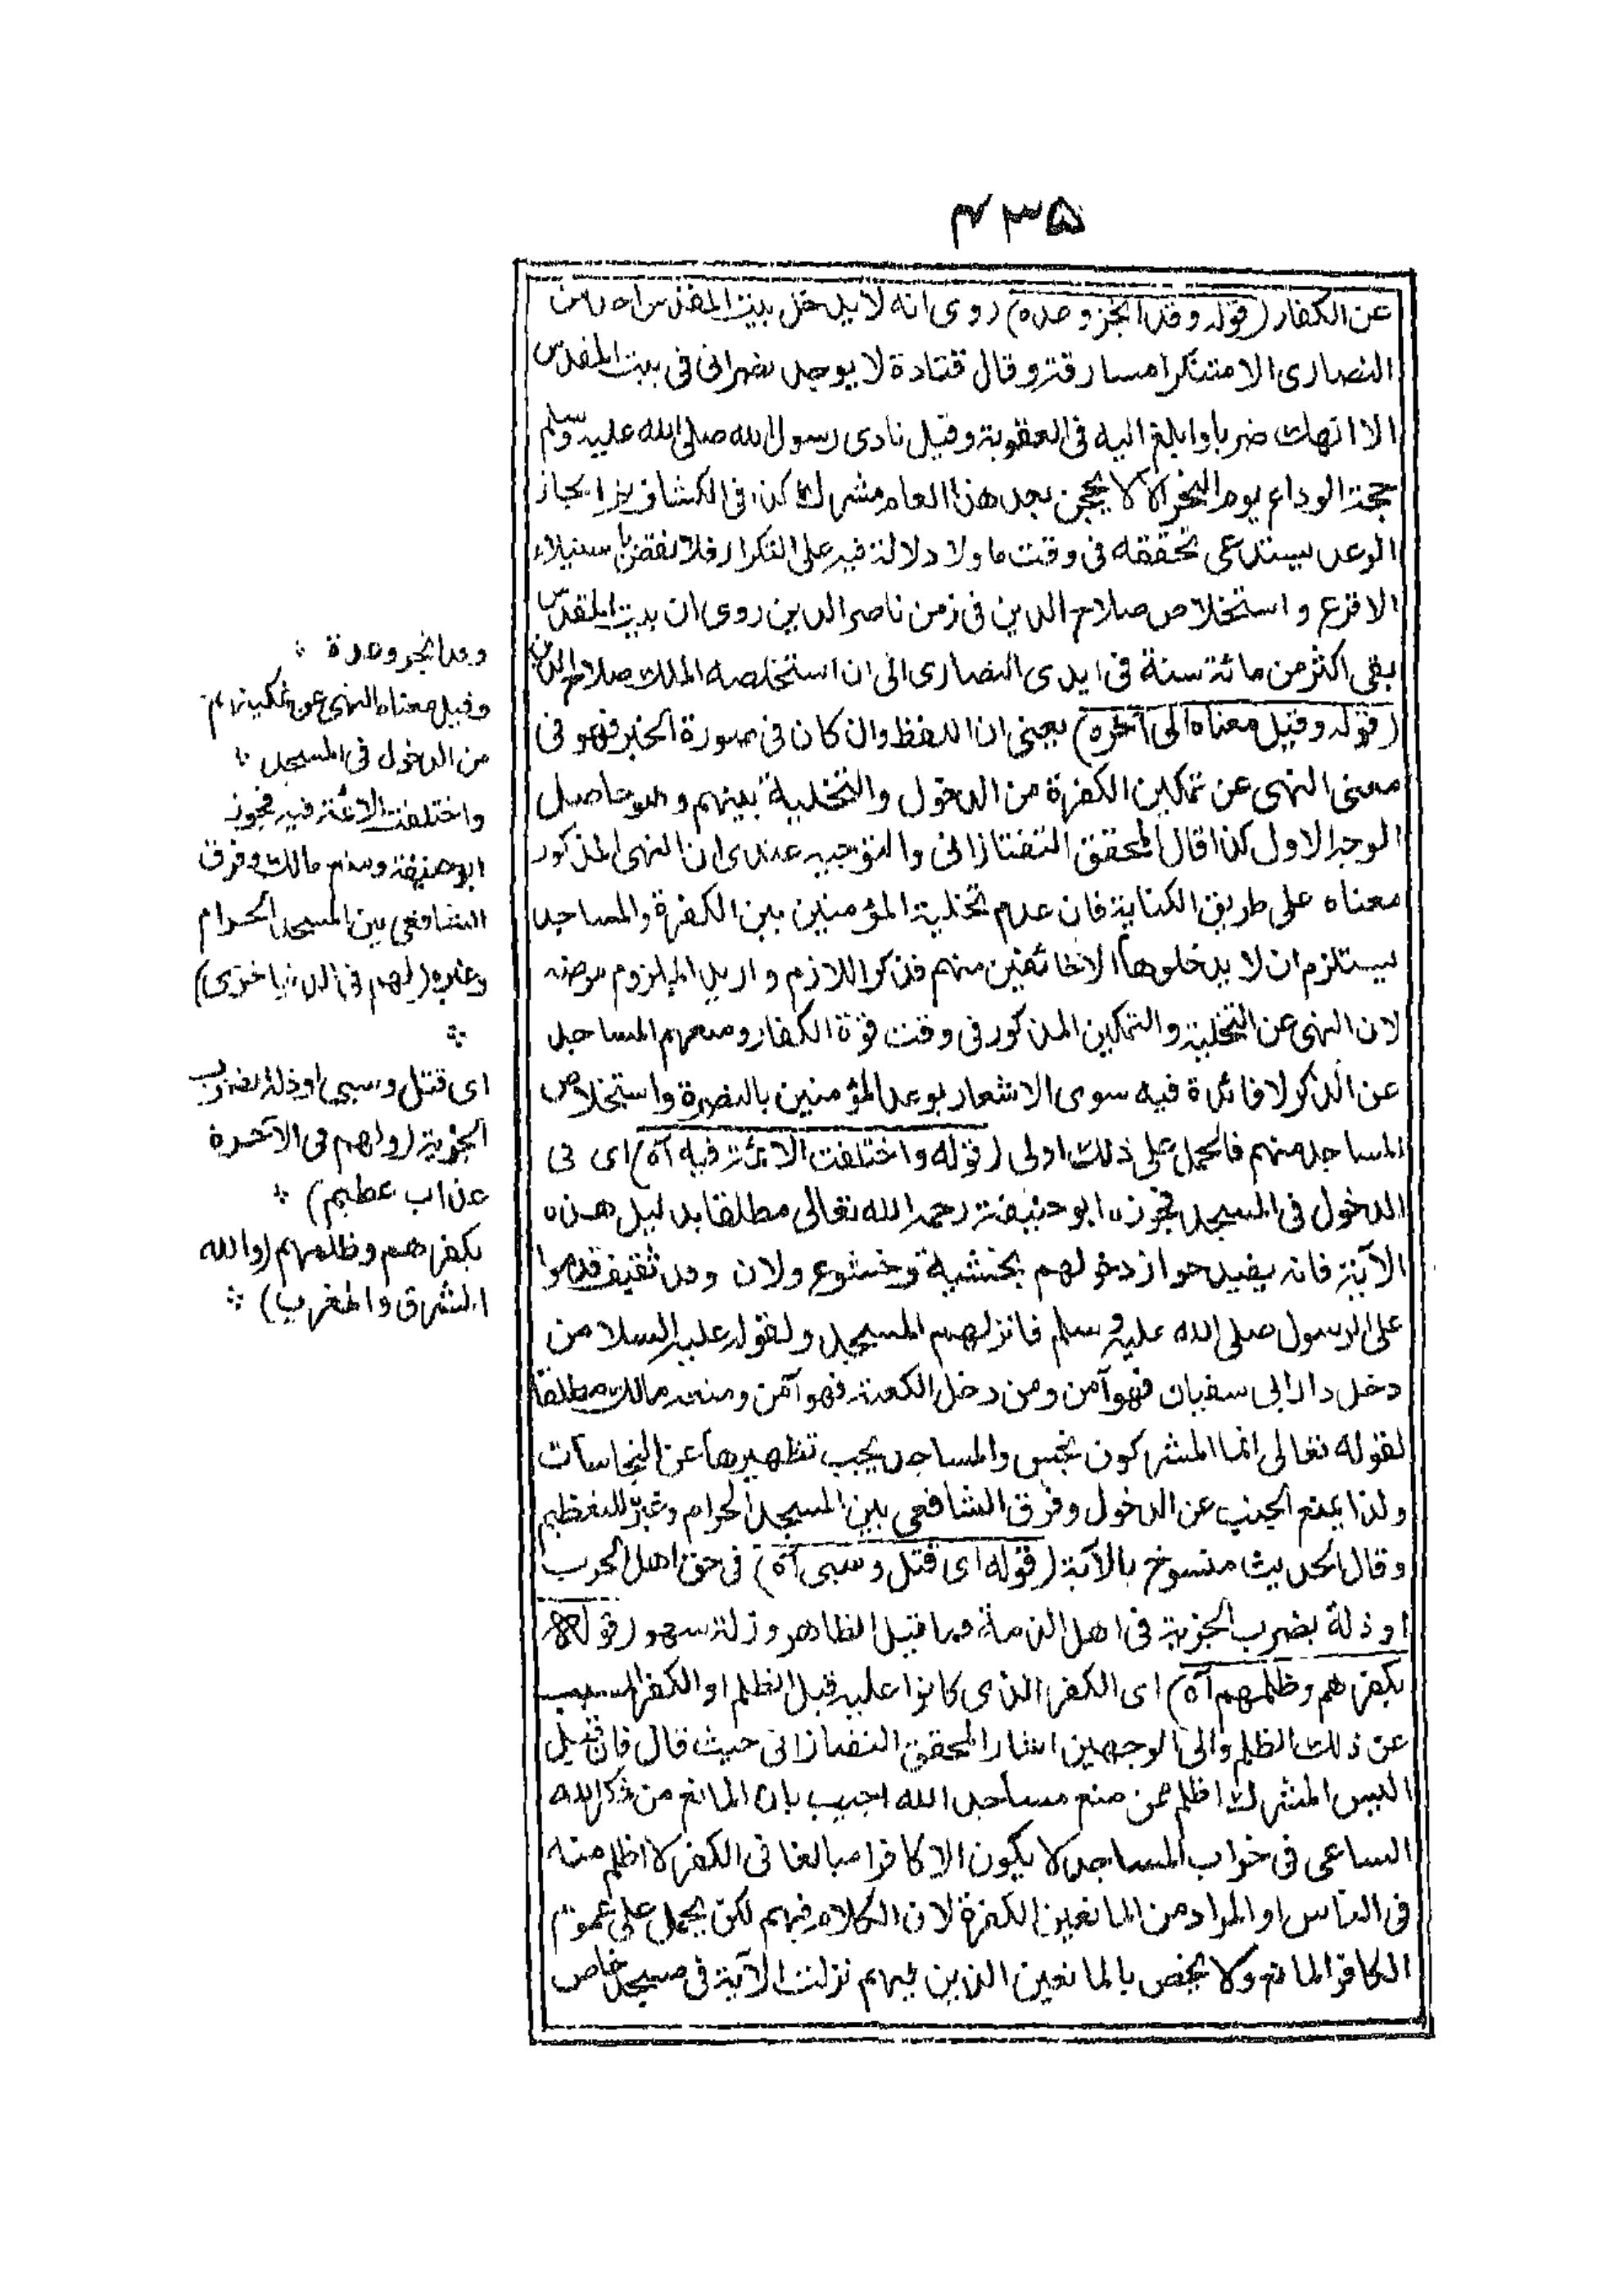 ۴۳۵
عن الكفار (قوله وقد انجز وعده) روى انه لا يدخل بيت المقدس احد من
النصارى الا متنكرا مسارقة وقال قتادة لا يوجد نصرانى فى بيت المقدس
الا انهك ضربا وابلغ اليه فى العقوبة وقيل نادى رسول الله صلى الله عليه وسلم
حجة الوداع يوم النحر الا لا يحجن بعد هذا العام مشرك كذا فى الكشاف ثم انجاز
الوعد يستدعى تحققه فى وقت ما ولا دلالة فيه على التكرار فلا نقض باستيلاء
الافرنج و استخلاص صلاح الدين فى زمن ناصر الدين روى ان بيت المقدس
بقى اكثر من مائة سنة فى ايدى النصارى الى ان استخلصه الملك صلاح الدين
(قوله وقيل معناه الى آخره) يعنى ان اللفظ وان كان فى صورة الخبر فهو فى
معنى النهى عن تمكين الكفرة من الدخول والتخلية بينهم وهو حاصل
الوجه الاول كذا قال المحقق التفتازانى والتوجيه عندى ان النهى المذكور
معناه على طريق الكناية فان عدم تخلية المؤمنين بين الكفرة والمساجد
يستلزم ان لا يدخلوها الا خائفين منهم فذكر اللازم و اريد الملزوم
لان النهى عن التخلية والتمكين المذكور فى وقت قوة الكفار ومنعهم المساجد
عن الذكر لا فائدة فيه سوى الاشعار بوعد المؤمنين بالنصرة واستخلاص
المساجد منهم فالحمل على ذلك اولى (قوله واختلفت الائمة فيه آه) اى فى
الدخول فى المسجد فجوزه ابو حنيفة رحمه الله تعالى مطلقا بدليل هذه
الآية فانه يفيد جواز دخولهم بخشية وخشوع ولان وفد ثقيف قدموا
على الرسول صلى الله عليه وسلم فانزلهم المسجد ولقوله عليه السلام من
دخل دار ابى سفيان فهو آمن ومن دخل الكعبة فهو آمن ومنعه مالك مطلقا
لقوله تعالى انما المشركون نجس والمساجد يجب تطهيرها عن النجاسات
ولذا يمنع الجنب عن الدخول وفرق الشافعى بين المسجد الحرام وغيره للتعظيم
وقال الحديث منسوخ بالآية (قوله اى قتل وسبى آه) فى حق اهل الحرب
او ذلة بضرب الجزية فى اهل الذمة وما قيل الظاهر وذلة سهو (قوله
بكفرهم وظلمهم آه) اى الكفر الذى كانوا عليه قبل الظلم او الكفر المسبب
عن ذلك الظلم والى الوجهين اشار المحقق التفتازانى حيث قال فان قيل
اليس المشرك اظلم ممن منع مساجد الله اجيب بان المانع من ذكر الله
الساعى فى خراب المساجد لا يكون الا كافرا مبالغا فى الكفر لا اظلم منه
فى الناس او المراد من المانعين الكفرة لان الكلام فيهم لكن يحمل على عموم
الكافر المانع ولا يخص بالمانعين الذين فيهم نزلت الآية فى مسجد خاص
وقد انجز وعدة
وقيل معناه النهى عن تمكينهم
من الدخول فى المسجد
واختلفت الائمة فيه فجوز
ابو حنيفة ومنع مالك وفرق
الشافعى بين المسجد الحرام
وغيره (لهم فى الدنيا خزى)
اى قتل وسبى او ذلة بضرب
الجزية (ولهم فى الآخرة
عذاب عظيم)
بكفرهم وظلمهم (ولله
المشرق والمغرب)